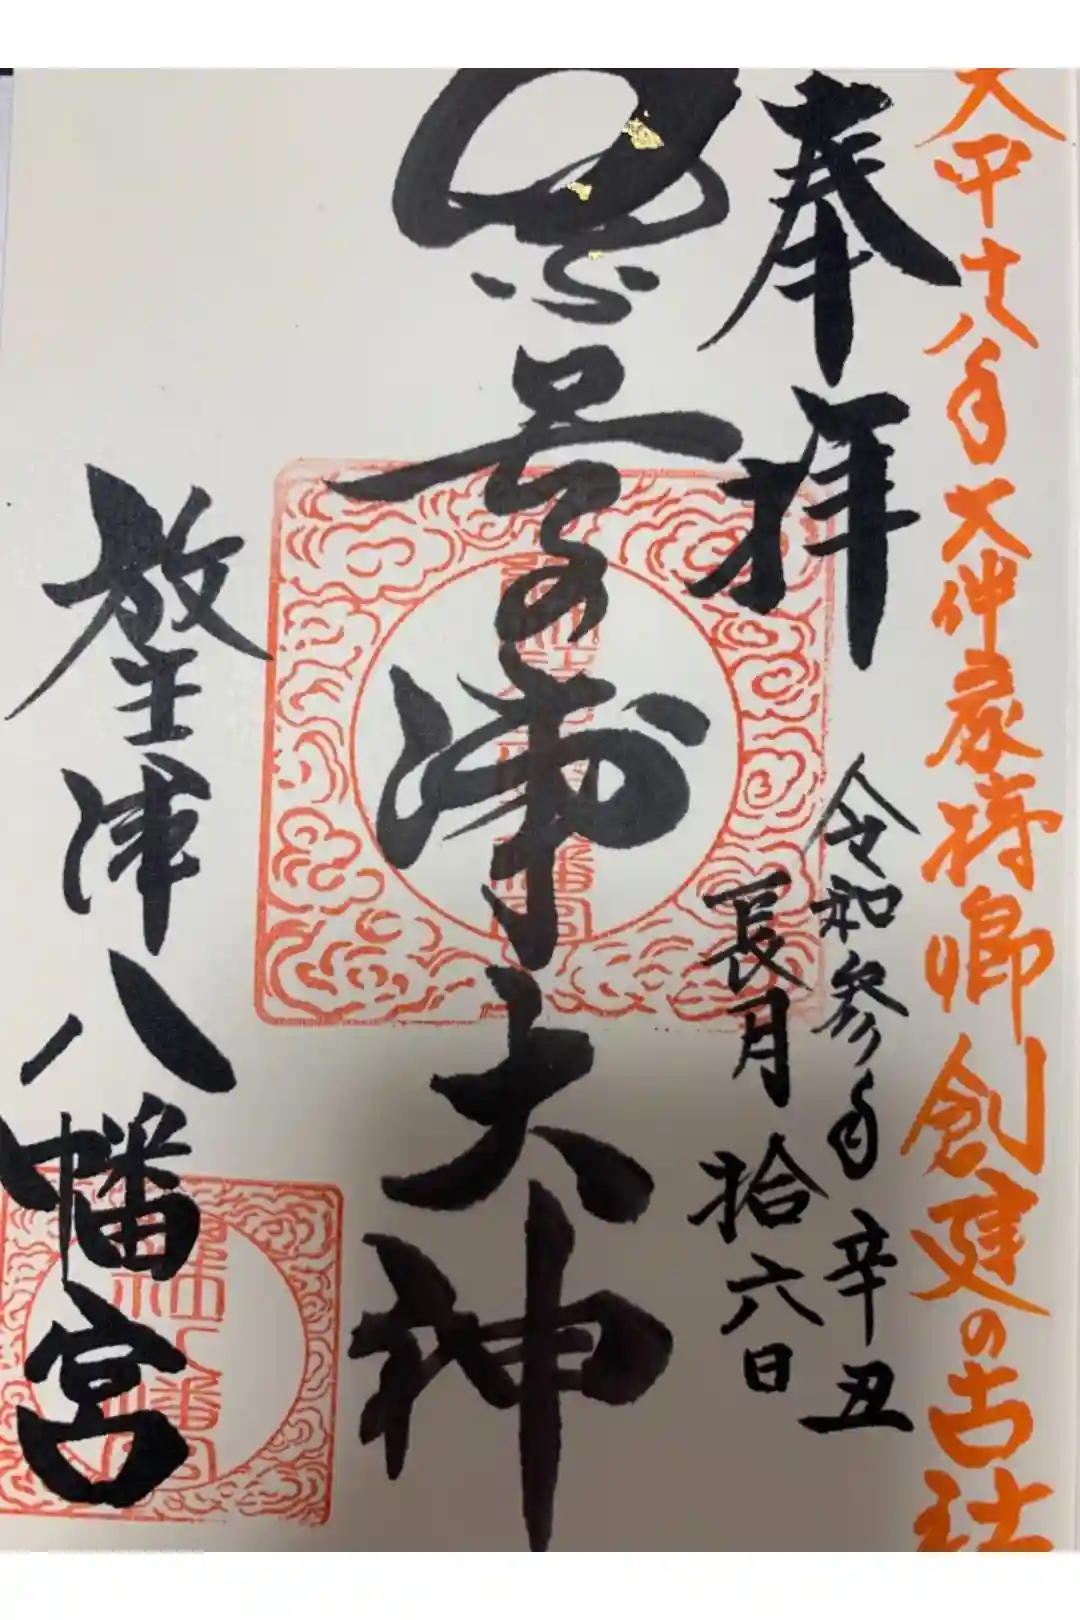 天平十八年 大伴家持卿創建の古社
奉拝
令和参年 辛丑
長月 拾六日
奈呉の浦大神
放生津八幡宮